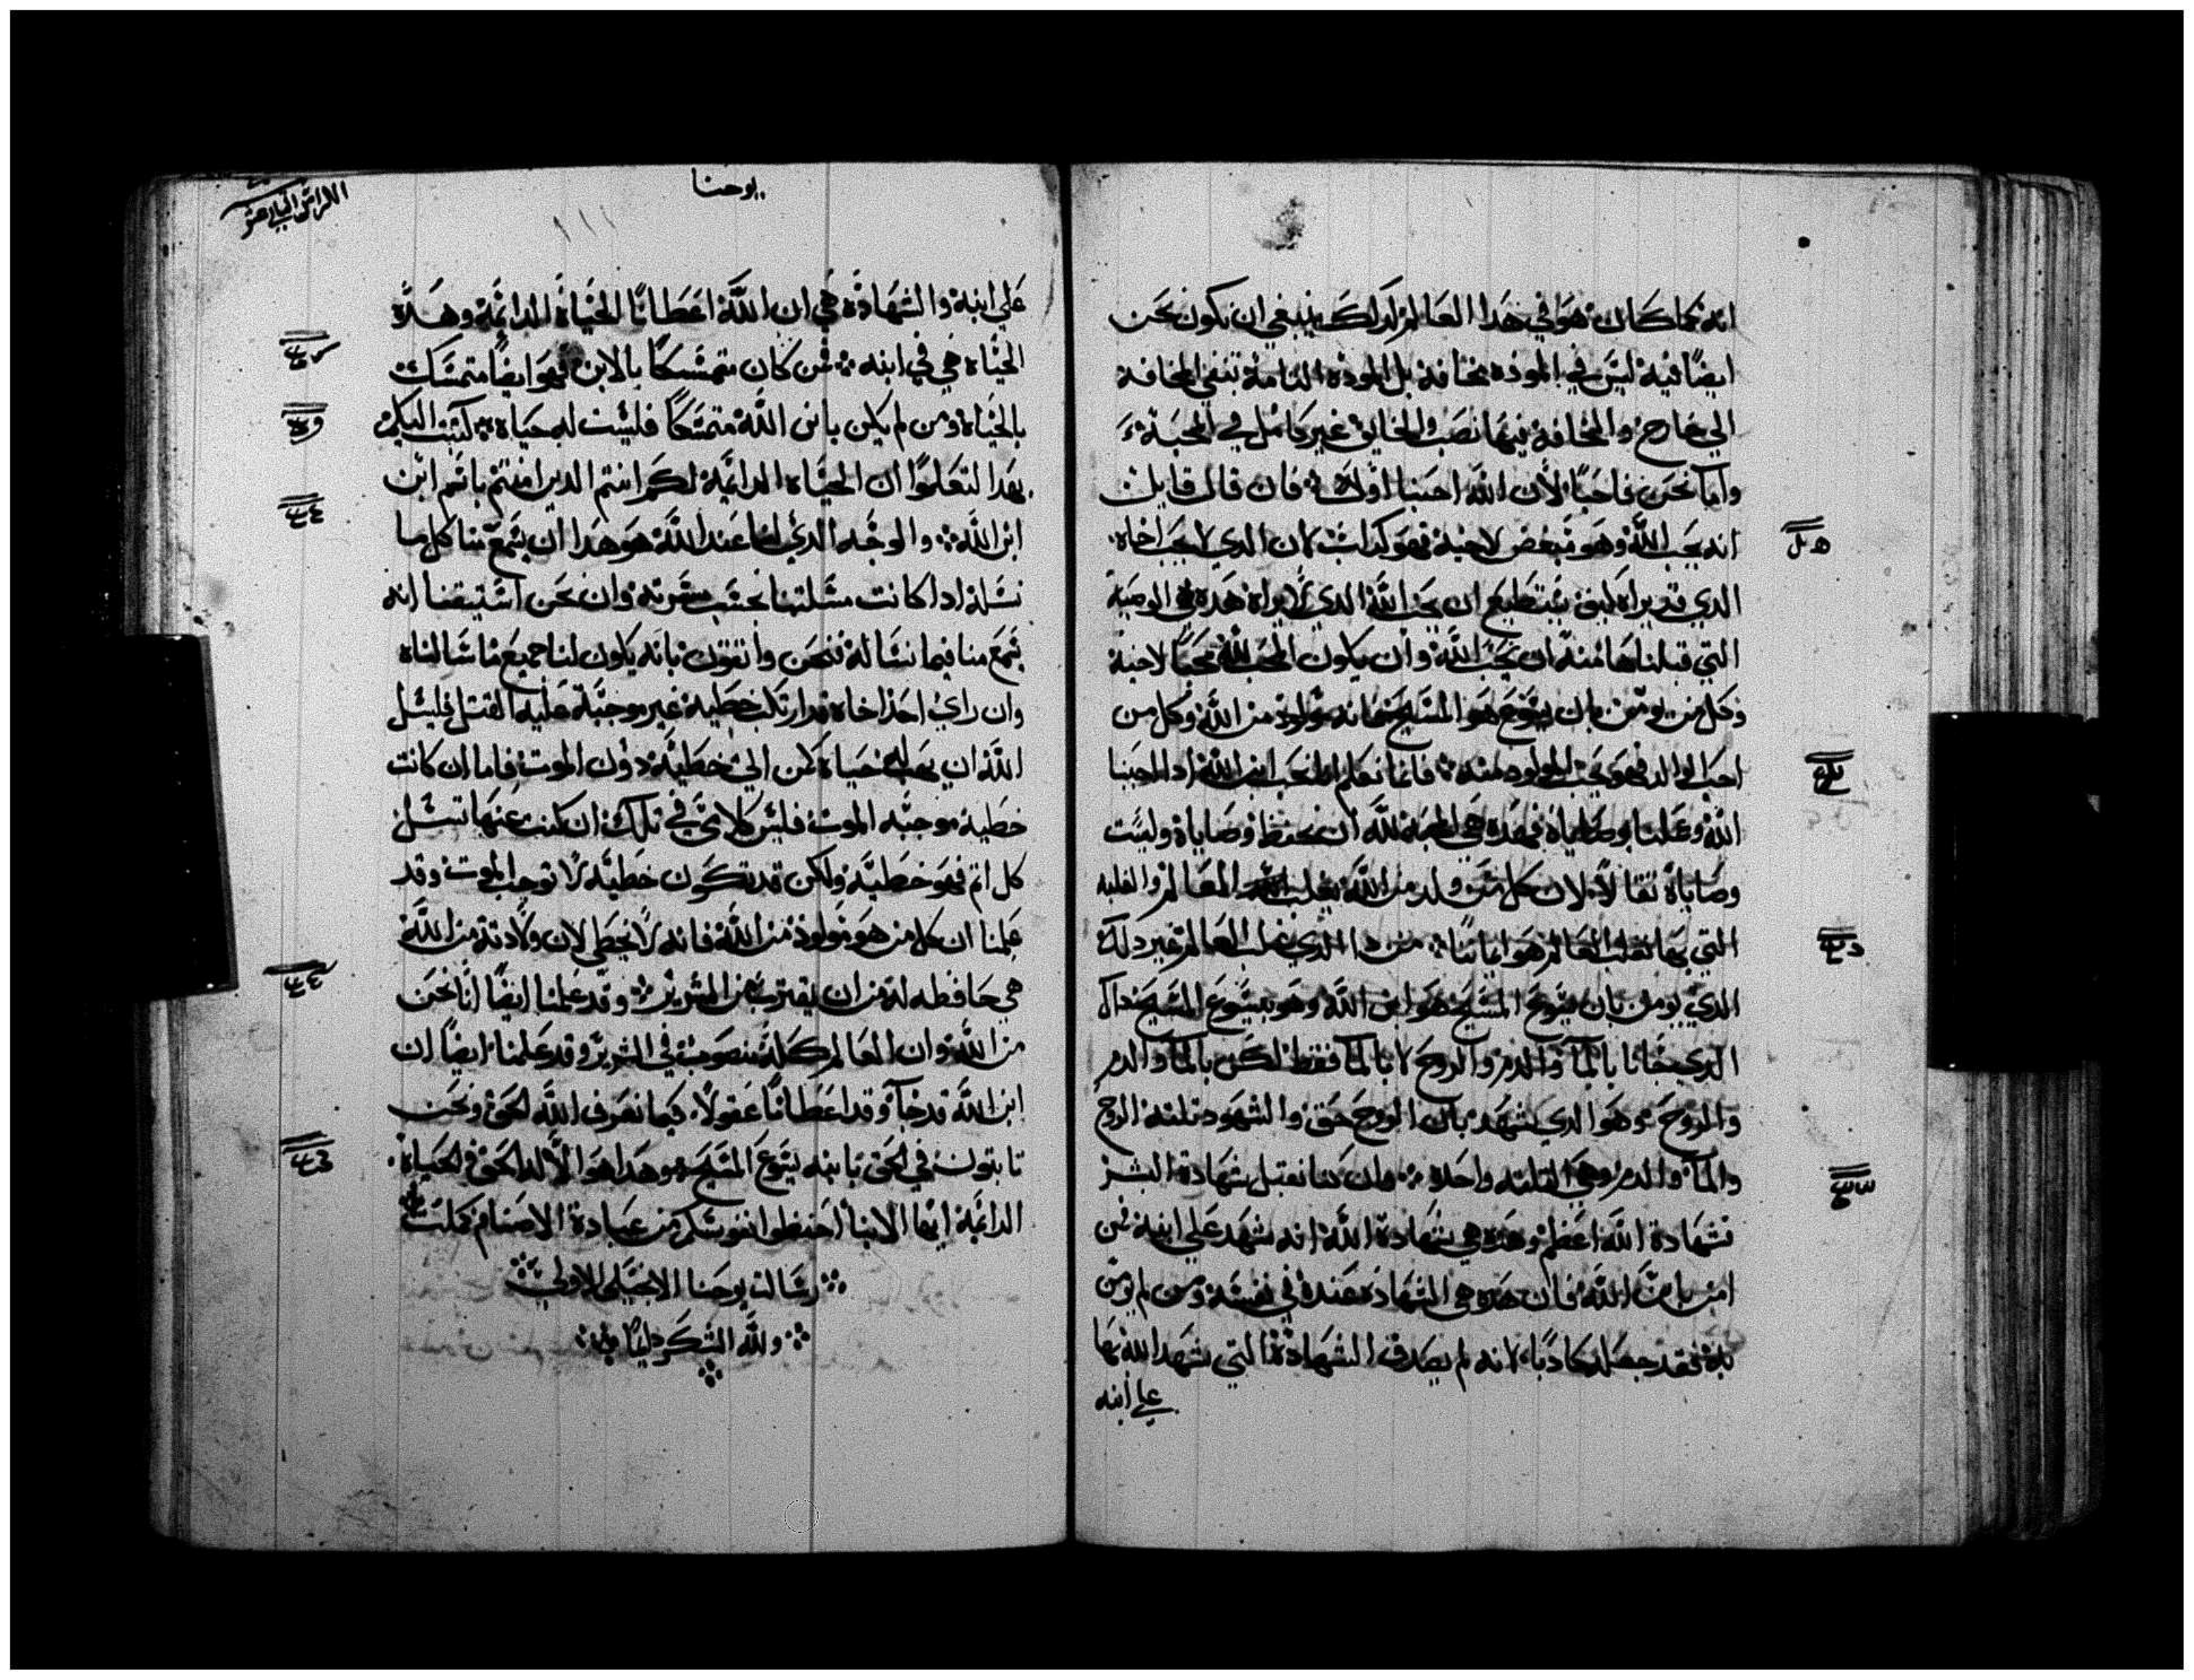 انه كما كان هو في هدا العالم كدلك ينبغي ان نكون نحن
ايضًا فيه ليس في الموده مخافة بل الموده التامة تنفي المخافة
الي خارج والمخافة فيها نصب والخايف غير كامل في المحبة
واما نحن فاحبنا لأن الله احبنا أولا فان قال قايل
انه يحب الله وهو مبغض لاخيه فهو كداب لان الدي لا يحب اخاه
الدي قد يراه كيف يستطيع ان يحب الله الدي لا يراه هده هي الوصية
التي قبلناها منه ان يحب الله وأن يكون المحب لله محبًا لاخيه
وكل من يومن بان يسوع هو المسيح فانه مولود من الله وكل من
احب الوالد فهو يحب المولود منه فانما نعلم انا نحب ابن الله ادا احببنا
الله وعملنا بوصاياه فهده هي المحبة لله أن نحفظ وصاياه وليست
وصاياه ثقالًا لان كل من ولد من الله يغلب العالم والغلبه
التي بها تغلب العالم هو ايماننا من دا الدي يغلب العالم غير دلك
الدي يومن بان يسوع المسيح هو ابن الله وهو يسوع المسيح هداك
الدي جانا بالمآ والدم والروح لا بالمآ فقط لكن بالمآ والدم
والروح وهو الدي يشهد بان الروح حق والشهود تلته الروح
والمآ والدم وهي التلته واحده وان كنا نقبل شهادة البشر
فشهادة الله اعظم وهده هي شهادة الله انه شهد علي ابنه فمن
امن بابن الله فان هده هي الشهاده عنده في نفسه ومن لم يومن
بالله فقد جعله كادبا لانه لم يصدق الشهادة التي شهد الله بها
علي ابنه
يوحنا
علي ابنه والشهادة هي ان الله اعطانا الحياة الدائمة وهده
الحياه هي في ابنه فمن كان متمسكًا بالابن فهو ايضًا متمسك
بالحياه ومن لم يكن بابن الله متمسكًا فليست له حياه كتبت اليكم
بهدا لتعلموا ان الحياه الدائمة لكم انتم الدين امنتم باسم ابن
ابن الله والوجه الدي لنا عند الله هو هدا ان يسمع منا كل ما
نسله ادا كانت مسلتنا بحسب مسرته وان نحن استيقنا انه
يسمع منا فيما نساله فنحن واتقون بانه يكون لنا جميع ما سالناه
وان راي احد اخاه قد ارتكب خطية غير موجبة عليه القتل فليسل
الله ان يهب له حياه كمن اتي خطية دون الموت فاما ان كانت
خطية موجبه الموت فليس كلامي في تلك ان كنت عنها تسل
كل اتم فهو خطيه ولكن قد تكون خطيه لا توجب الموت وقد
علمنا ان كل من هو مولود من الله فانه لا يخطي لان ولادته من الله
هي حافظه له من ان يقترب من الشرير وقد علمنا ايضًا انا نحن
من الله وان العالم كله منصوب في الشرير وقد علمنا ايضًا ان
ابن الله قد جآ وقد اعطانا عقولًا كيما نعرف الله الحق ونحن
تابتون في الحق بابنه يسوع المسيح وهدا هو الاله الحق والحياة
الدائمة ايها الابنا احفظوا انفوسكم من عبادة الاصنام كملت
رسالت يوحنا الانجيلي الاولي
ولله الشكر دايمًا